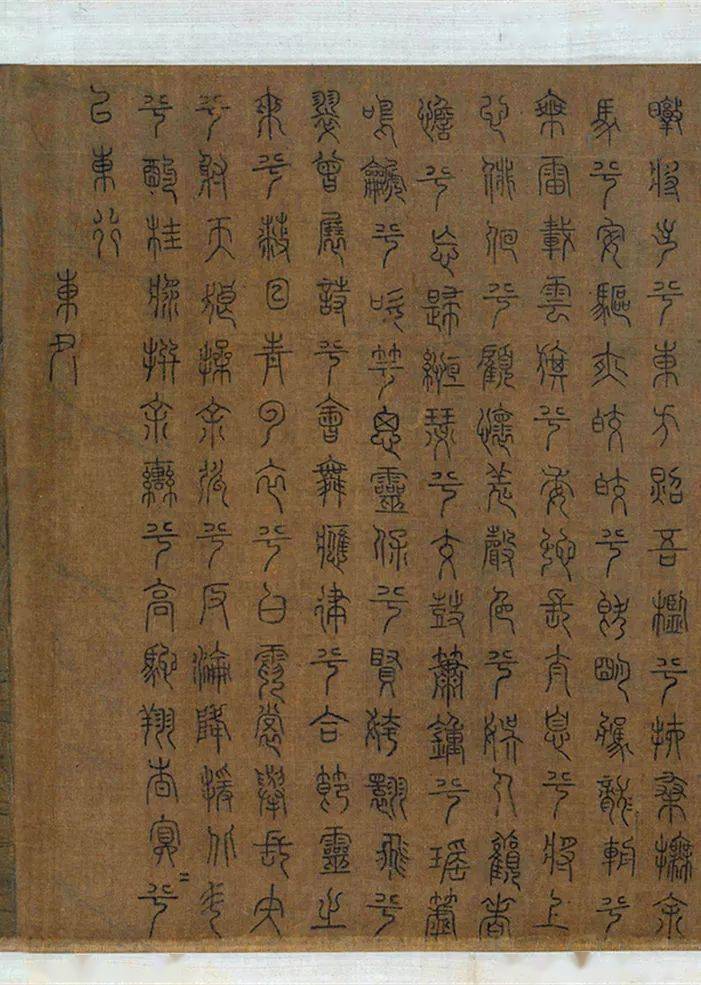 暾將出兮東方照吾檻兮扶桑撫余
馬兮安驅夜皎皎兮既明駕龍輈兮
乘雷載雲旗兮委蛇長太息兮將上
心俳佪兮顧懷羌聲色兮娛人觀者
憺兮忘歸緪瑟兮交鼓簫鐘兮瑤簴
鳴䶵兮吹竽思靈保兮賢姱翾飛兮
翠曾展詩兮會舞應律兮合節靈之
來兮蔽日青雲衣兮白霓裳舉長矢
兮射天狼操余弧兮反淪降援北斗
兮酌桂漿撰余轡兮高馳翔杳冥=兮
以東行
東君